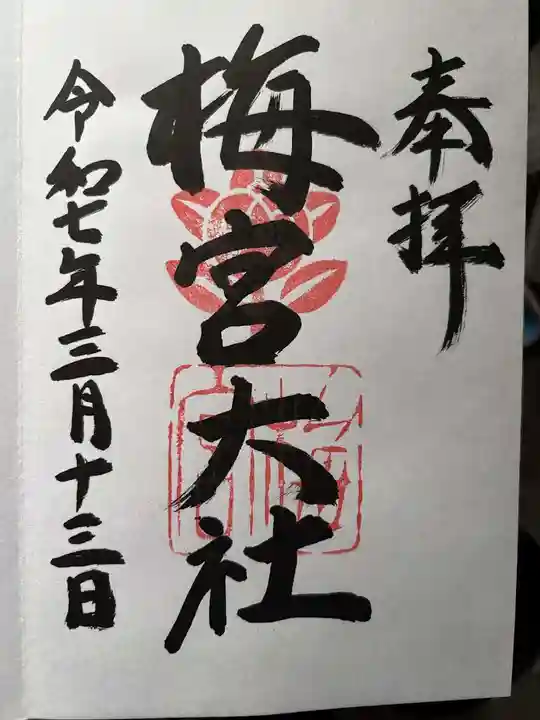 奉拝
梅宮大社
令和七年三月十三日